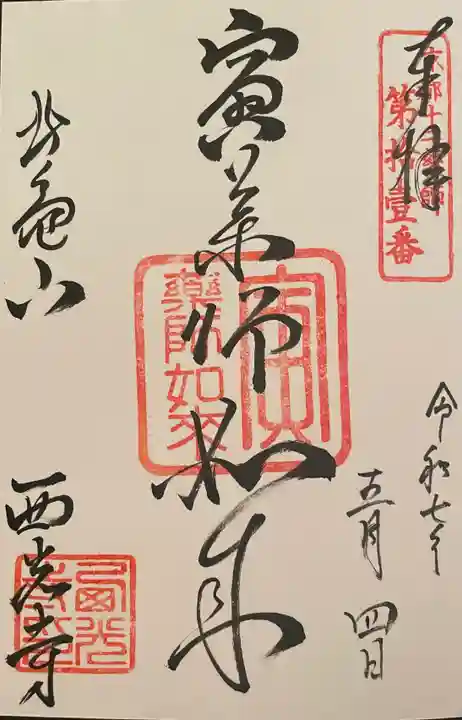 奉拝
京都十二薬師
第拾壹番
寅薬師如来
寅
薬師如来
令和七年
五月四日
北亀山
西光寺